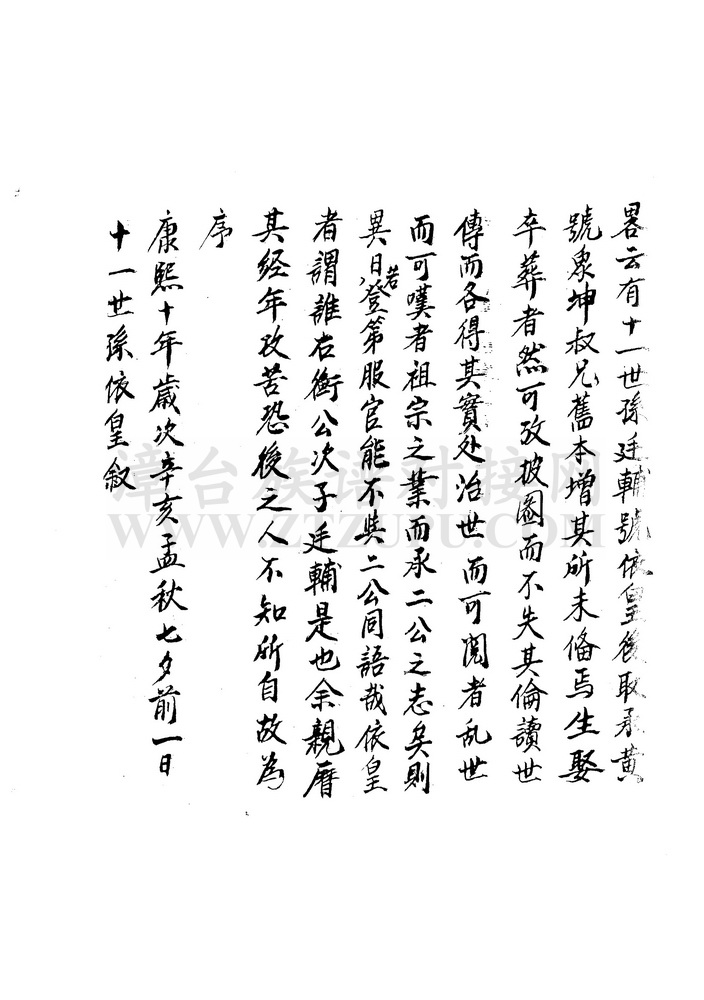 畧云有十一世孫廷輔號依皇後取承黃
號泉坤叔兄舊本增其所未偹焉生娶
卒葬者然可攷披圖而不失其倫讀世
傳而各得其實处治世而可閲者乱世
而可嘆者祖宗之業而承二公之志矣則
異日若登第服官能不與二公同語哉依皇
者謂誰右衡公次子廷輔是也余親曆
其经年攷苦恐後之人不知所自故為
序
康熙十年歲次辛亥孟秋七夕前一日
十一世孫依皇叙
漳台族谱对接网
WWW.ZTZUPU.COM